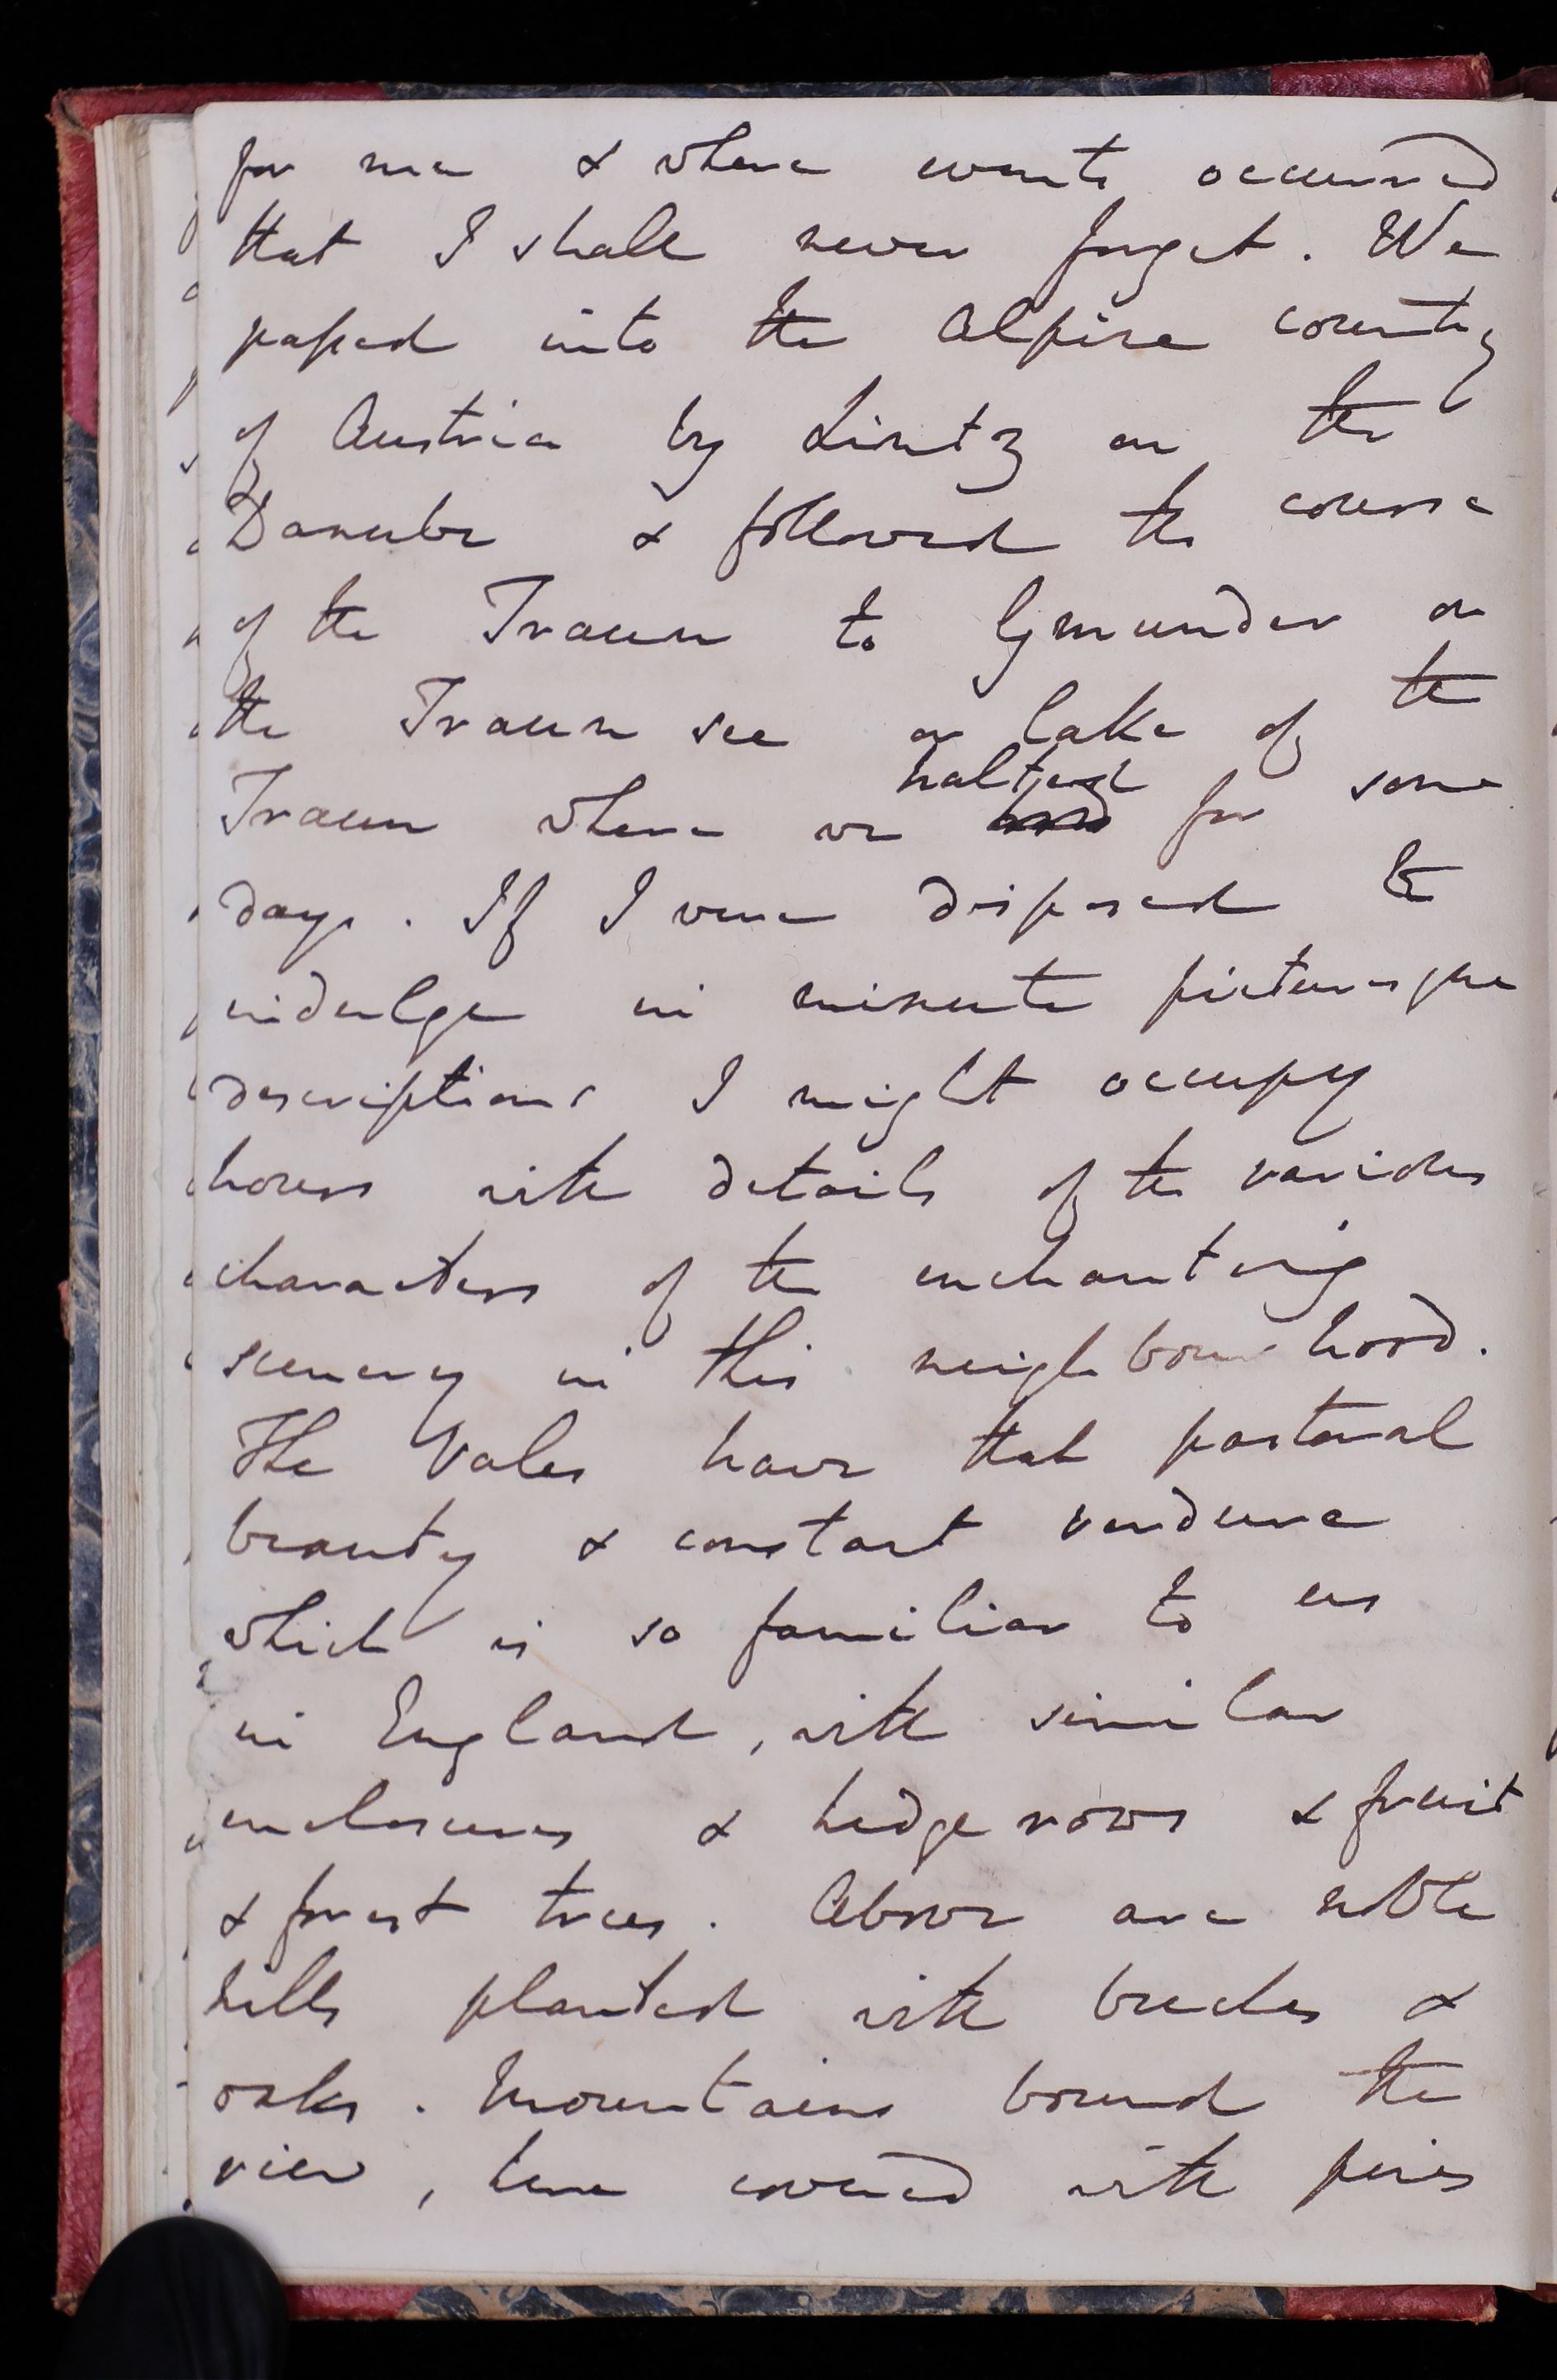 for me & where events occurred
that I shall never forget. We
passed into the Alpine country
of Austria by Lintz on the
Danube & followed the course
of the Traun to Gmunden on
the Traun see or lake of the
halted
Traun where we for some
days. If I were disposed to
indulge in minute picturesque
descriptions I might occupy
hours with details of the various
characters of the enchanting
scenery in this neighbourhood.
The Vales have that pastoral
beauty & constant verdure
which is so familiar to us
in England, with similar
enclosures & hedge rows & fruit
& forest trees. Above are noble
hills planted with beeches &
oaks. Mountains bound the
view, here covered with pines